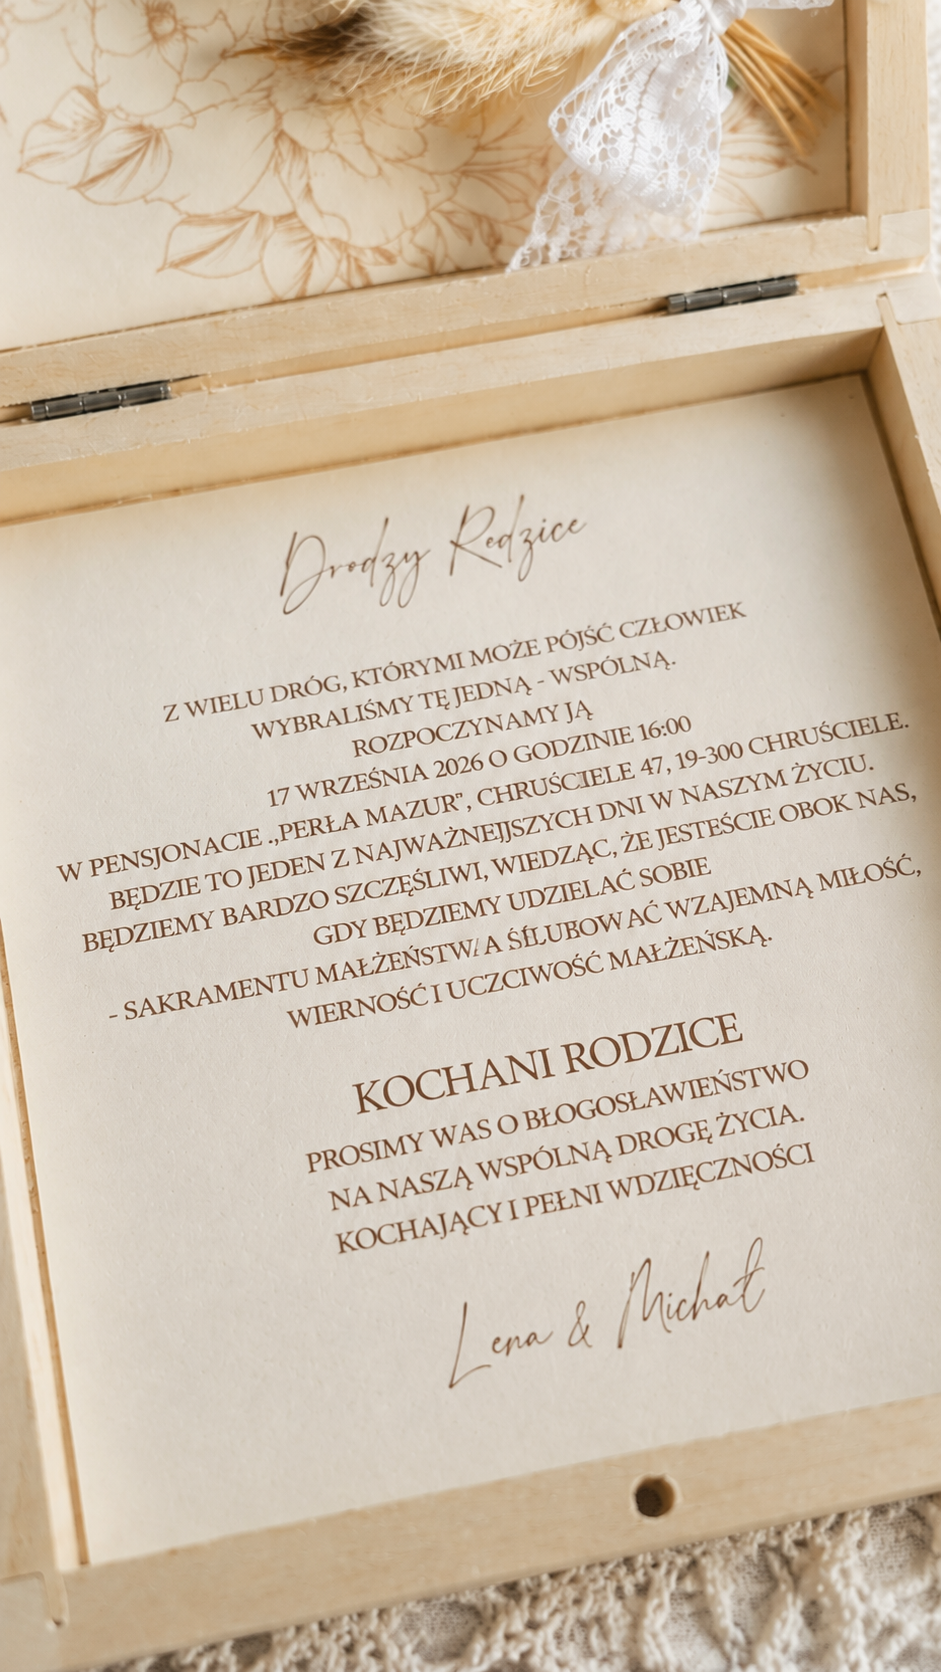 Drodzy Rodzice
Z WIELU DRÓG, KTÓRYMI MOŻE PÓJŚĆ CZŁOWIEK
WYBRALIŚMY TĘ JEDNĄ - WSPÓLNĄ.
ROZPOCZYNAMY JĄ
17 WRZEŚNIA 2026 O GODZINIE 16:00
W PENSJONACIE „PERŁA MAZUR”, CHRUŚCIELE 47, 19-300 CHRUŚCIELE.
BĘDZIE TO JEDEN Z NAJWAŻNEJJSZYCH DNI W NASZYM ŻYCIU.
BĘDZIEMY BARDZO SZCZĘŚLIWI, WIEDZĄC, ŻE JESTEŚCIE OBOK NAS,
GDY BĘDZIEMY UDZIELAĆ SOBIE
- SAKRAMENTU MAŁŻEŃSTW/ A ŚLUBOWAĆ WZAJEMNĄ MIŁOŚĆ,
WIERNOŚĆ I UCZCIWOŚĆ MAŁŻEŃSKĄ.
KOCHANI RODZICE
PROSIMY WAS O BŁOGOSŁAWIEŃSTWO
NA NASZĄ WSPÓLNĄ DROGĘ ŻYCIA.
KOCHAJĄCY I PEŁNI WDZIĘCZNOŚCI
Lena & Michał